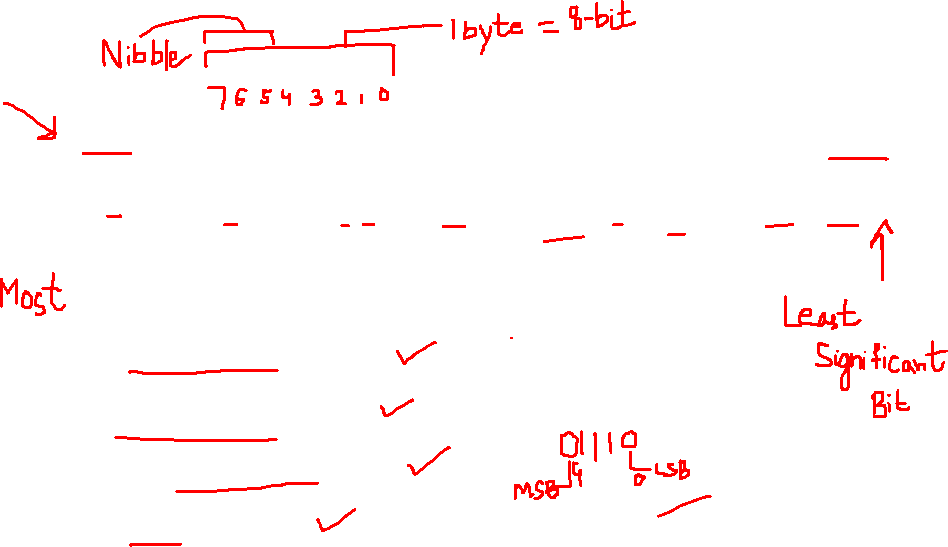 Nibble 1 byte = 8-bit
7 6 5 4 3 2 1 0
Most
Least
Significant
Bit
01110
4 0
MSB LSB